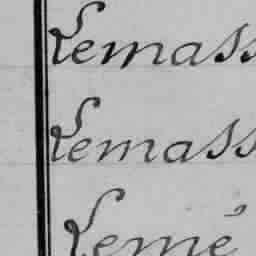 Lemass
Lemass
Lemé